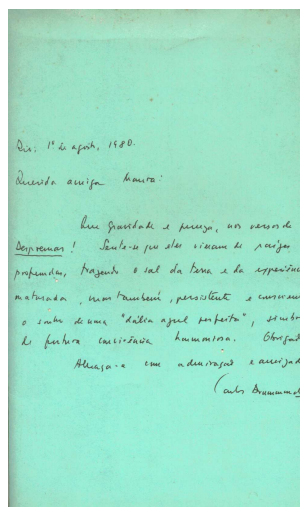 Rio, 1º de agosto, 1980.
Querida amiga Maura:
Que gravidade e pureza, nos versos de
Despremas! Sente-se que eles vieram de raízes
profundas, trazendo o sal da terra e da experiência
maturada, mas também, persistente e
o sonho de uma "dália azul perfeita", símbolo
de futura convivência harmoniosa. Obrigado
Abraça-a com admiração e amizade
Carlos Drummond